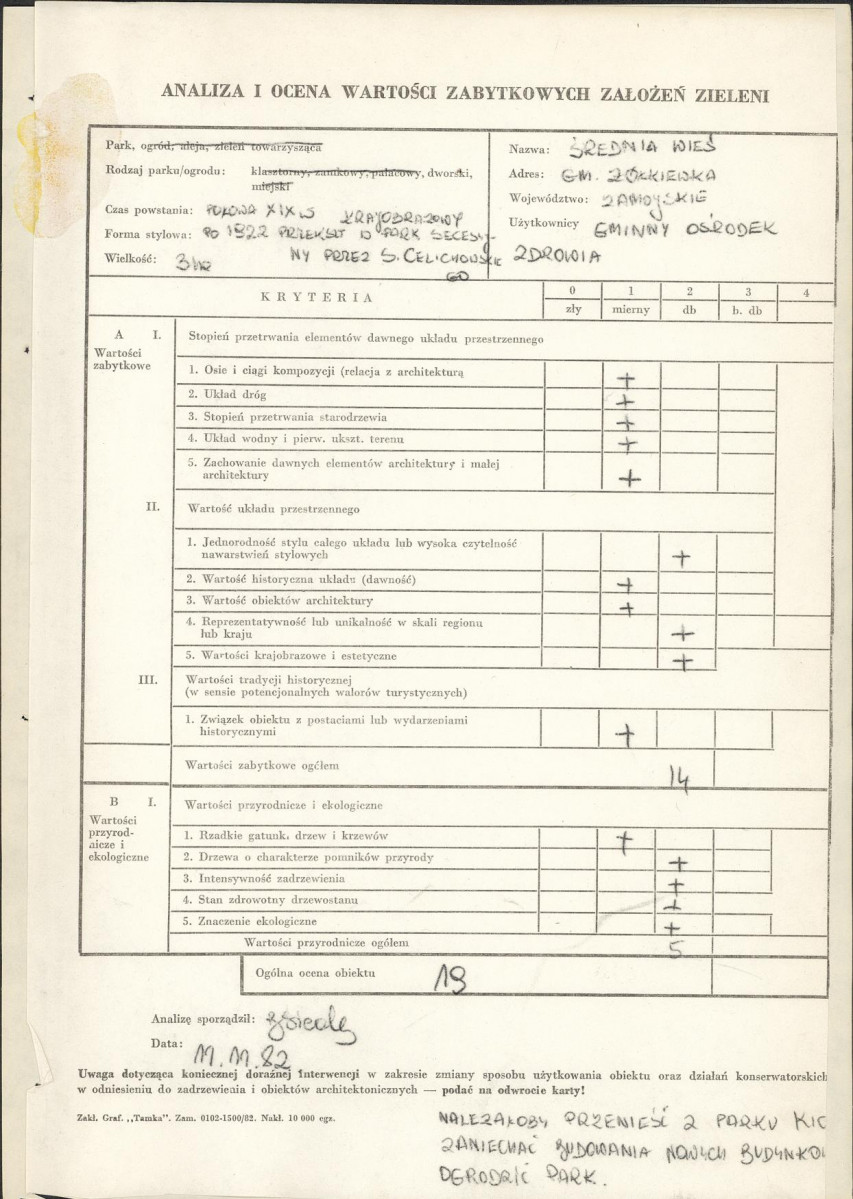 ANALIZA I OCENA WARTOŚCI ZABYTKOWYCH ZAŁOŻEŃ ZIELENI
Park, ogród, aleja, zieleń towarzysząca
Rodzaj parku/ogrodu: klasztorny, zamkowy, pałacowy, dworski,
miejski
Czas powstania: POŁOWA XIX W KRAJOBRAZOWY
Forma stylowa: PO 1922 PRZEKSZT W PARK SECESYJ-
Wielkość: 3 ha NY PRZEZ S. CELICHOWSKIE
GO
Nazwa: ŚREDNIA WIEŚ
Adres: GM. ŻÓŁKIEWKA
Województwo: ZAMOJSKIE
Użytkownicy GMINNY OŚRODEK
ZDROWIA
KRYTERIA 0 1 2 3 4
zły mierny db b. db
A I. Stopień przetrwania elementów dawnego układu przestrzennego
Wartości
zabytkowe
1. Osie i ciągi kompozycji (relacja z architekturą +
2. Układ dróg +
3. Stopień przetrwania starodrzewia +
4. Układ wodny i pierw. ukszt. terenu +
5. Zachowanie dawnych elementów architektury i małej
architektury +
II. Wartość układu przestrzennego
1. Jednorodność stylu całego układu lub wysoka czytelność
nawarstwień stylowych +
2. Wartość historyczna układu (dawność) +
3. Wartość obiektów architektury +
4. Reprezentatywność lub unikalność w skali regionu
lub kraju +
5. Wartości krajobrazowe i estetyczne +
III. Wartości tradycji historycznej
(w sensie potencjonalnych walorów turystycznych)
1. Związek obiektu z postaciami lub wydarzeniami
historycznymi +
Wartości zabytkowe ogółem 14
B I. Wartości przyrodnicze i ekologiczne
Wartości
przyrod-
nicze i
ekologiczne
1. Rzadkie gatunk. drzew i krzewów +
2. Drzewa o charakterze pomników przyrody +
3. Intensywność zadrzewienia +
4. Stan zdrowotny drzewostanu +
5. Znaczenie ekologiczne +
Wartości przyrodnicze ogółem 5
Ogólna ocena obiektu 19
Analizę sporządził:
Data: 11.11.82
Uwaga dotycząca koniecznej doraźnej interwencji w zakresie zmiany sposobu użytkowania obiektu oraz działań konserwatorskich
w odniesieniu do zadrzewienia i obiektów architektonicznych — podać na odwrocie karty!
Zakł. Graf. „Tamka". Zam. 0102-1500/82. Nakł. 10 000 egz.
NALEŻAŁOBY PRZENIEŚĆ Z PARKU KIO
ZANIECHAĆ BUDOWANIA NOWYCH BUDYNKÓW
OGRODZIĆ PARK.